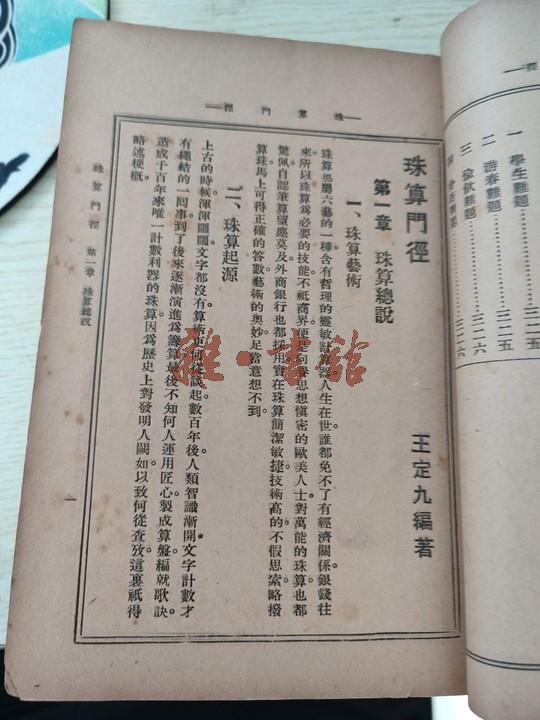 一學生難題……三二五
二游春難題……三二五
三　飲難題……三二六
四　　難題……三二六
—珠算門徑—
珠算門徑
王定九編著
第一章　珠算總說
一、珠算藝術
珠算也屬六藝的一種含有哲理的靈敏計算器人生在世誰都免不了有經濟關係銀錢往
來所以珠算爲必要的技能。不祇商界便是向譽思想愼密的歐美人士對萬能的珠算也都
驚佩自認筆算望塵莫及外商銀行也都採用實在珠算簡潔敏捷技術高的不假思索略撥
算珠馬上可得正確的答數藝術的奧妙足當意想不到。
二、珠算起源
上古的時候渾渾圇圇文字都沒有算術更何從談起數百年後人類智識漸開文字計數才
有繩結的一囘事到了後來逐漸演進爲籌算最後不知何人運用匠心製成算盤編就歌訣
造成千百年來唯一計數利器的珠算因爲歷史上對發明人闕如以致何從查攷這裏祇得
略述梗概。
珠算門徑　第一章　珠算總說
一
雜·書館